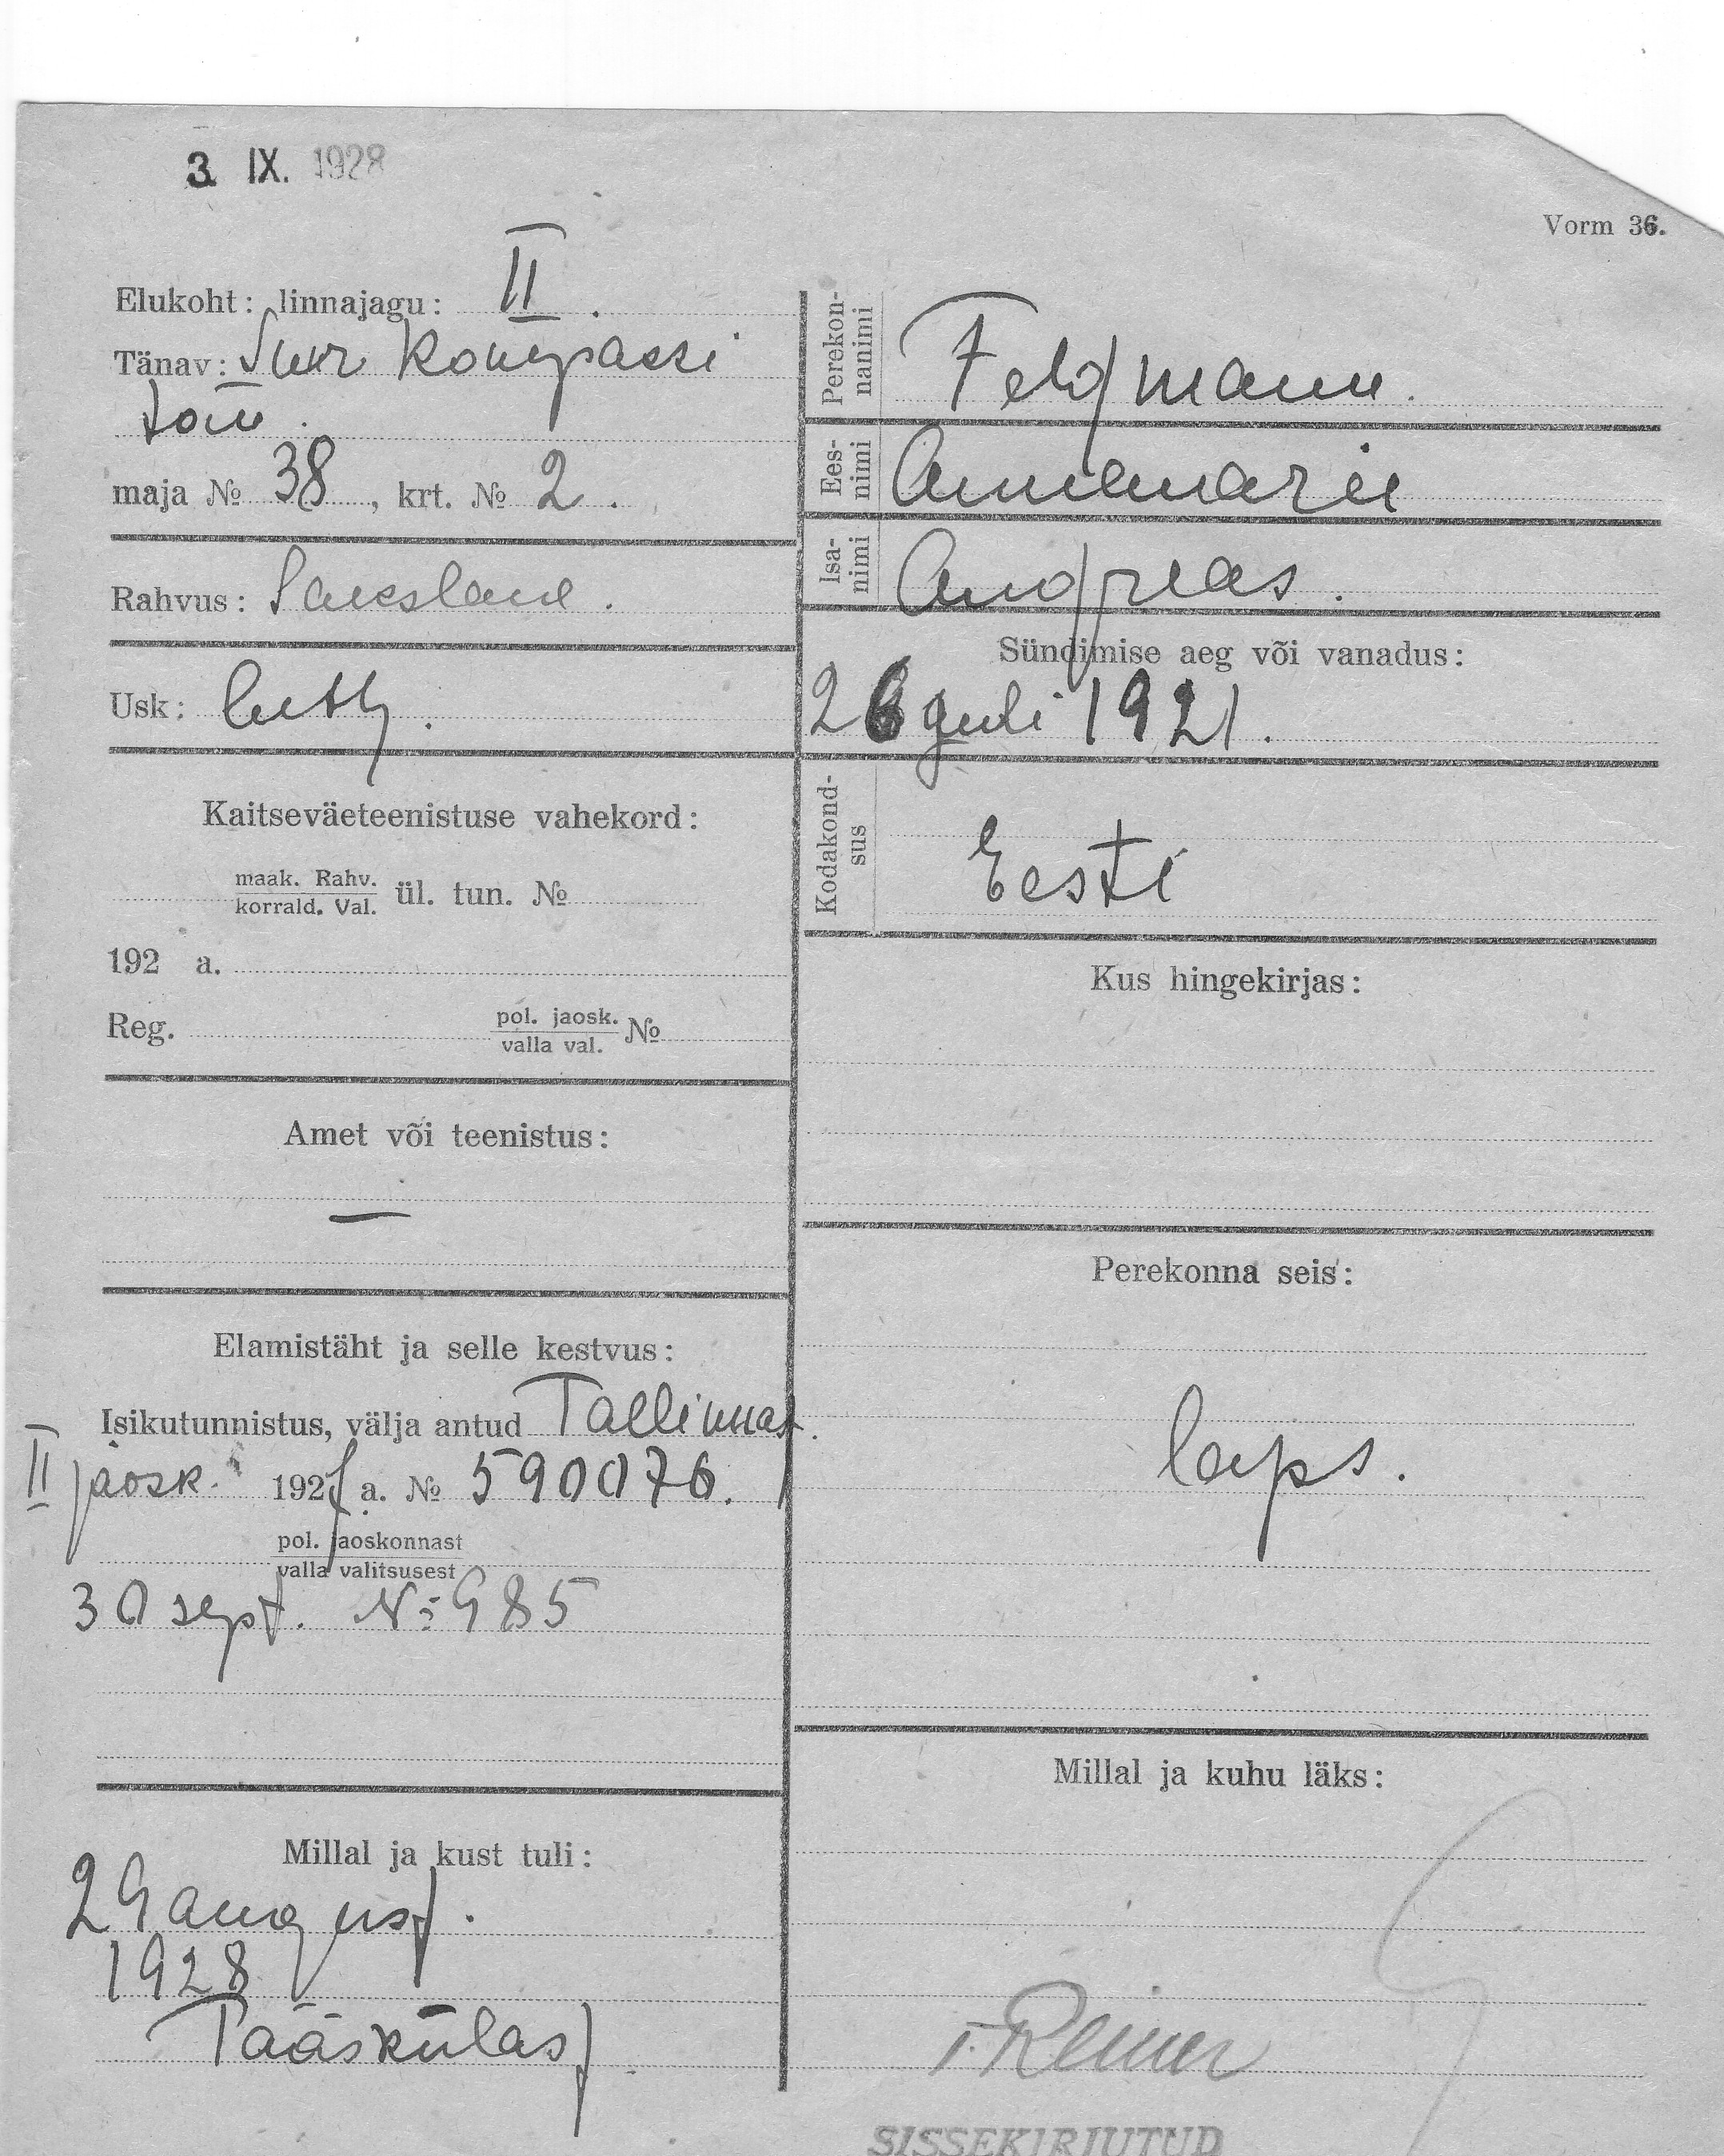 3. IX. 1928
Vorm 36.
Elukoht: linnajagu: II.
Tänav: Suur Kompassi
tän.
maja № 38, krt. № 2.
Rahvus: Sakslane.
Usk: luth.
Kaitseväeteenistuse vahekord:
maak. Rahv.
korrald. Val. ül. tun. №
192 a.
Reg. pol. jaosk.
valla val. №
Amet või teenistus:
—
Elamistäht ja selle kestvus:
Isikutunnistus, välja antud Tallinnas.
II jaosk. 192 a. № 590076.
pol. jaoskonnast
valla valitsusest
30 sept. №985
Millal ja kust tuli:
29 august.
1928
Pääskülast
Perekon-
nanimi
Feldmann.
Ees-
nimi
Annemarie
Isa-
nimi
Andreas.
Sündimise aeg või vanadus:
26 juuli 1921.
Kodakond-
sus
Eesti
Kus hingekirjas:
Perekonna seis:
laps.
Millal ja kuhu läks:
SISSEKIRJUTUD